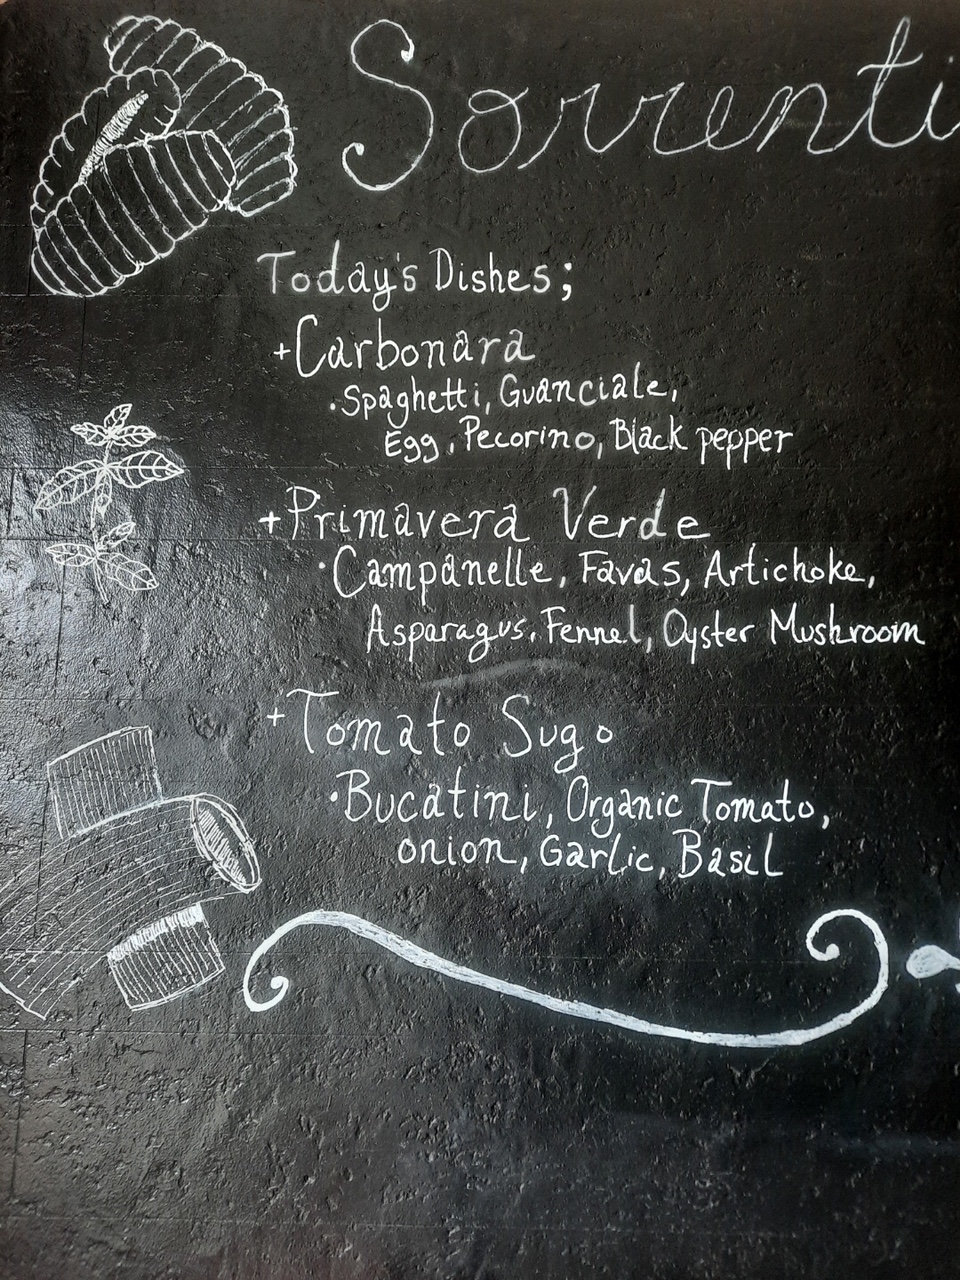 Sorrenti
Today's Dishes;
+Carbonara
·Spaghetti, Guanciale,
Egg, Pecorino, Black pepper
+Primavera Verde
·Campanelle, Favas, Artichoke,
Asparagus, Fennel, Oyster Mushroom
+Tomato Sugo
·Bucatini, Organic Tomato,
onion, Garlic, Basil